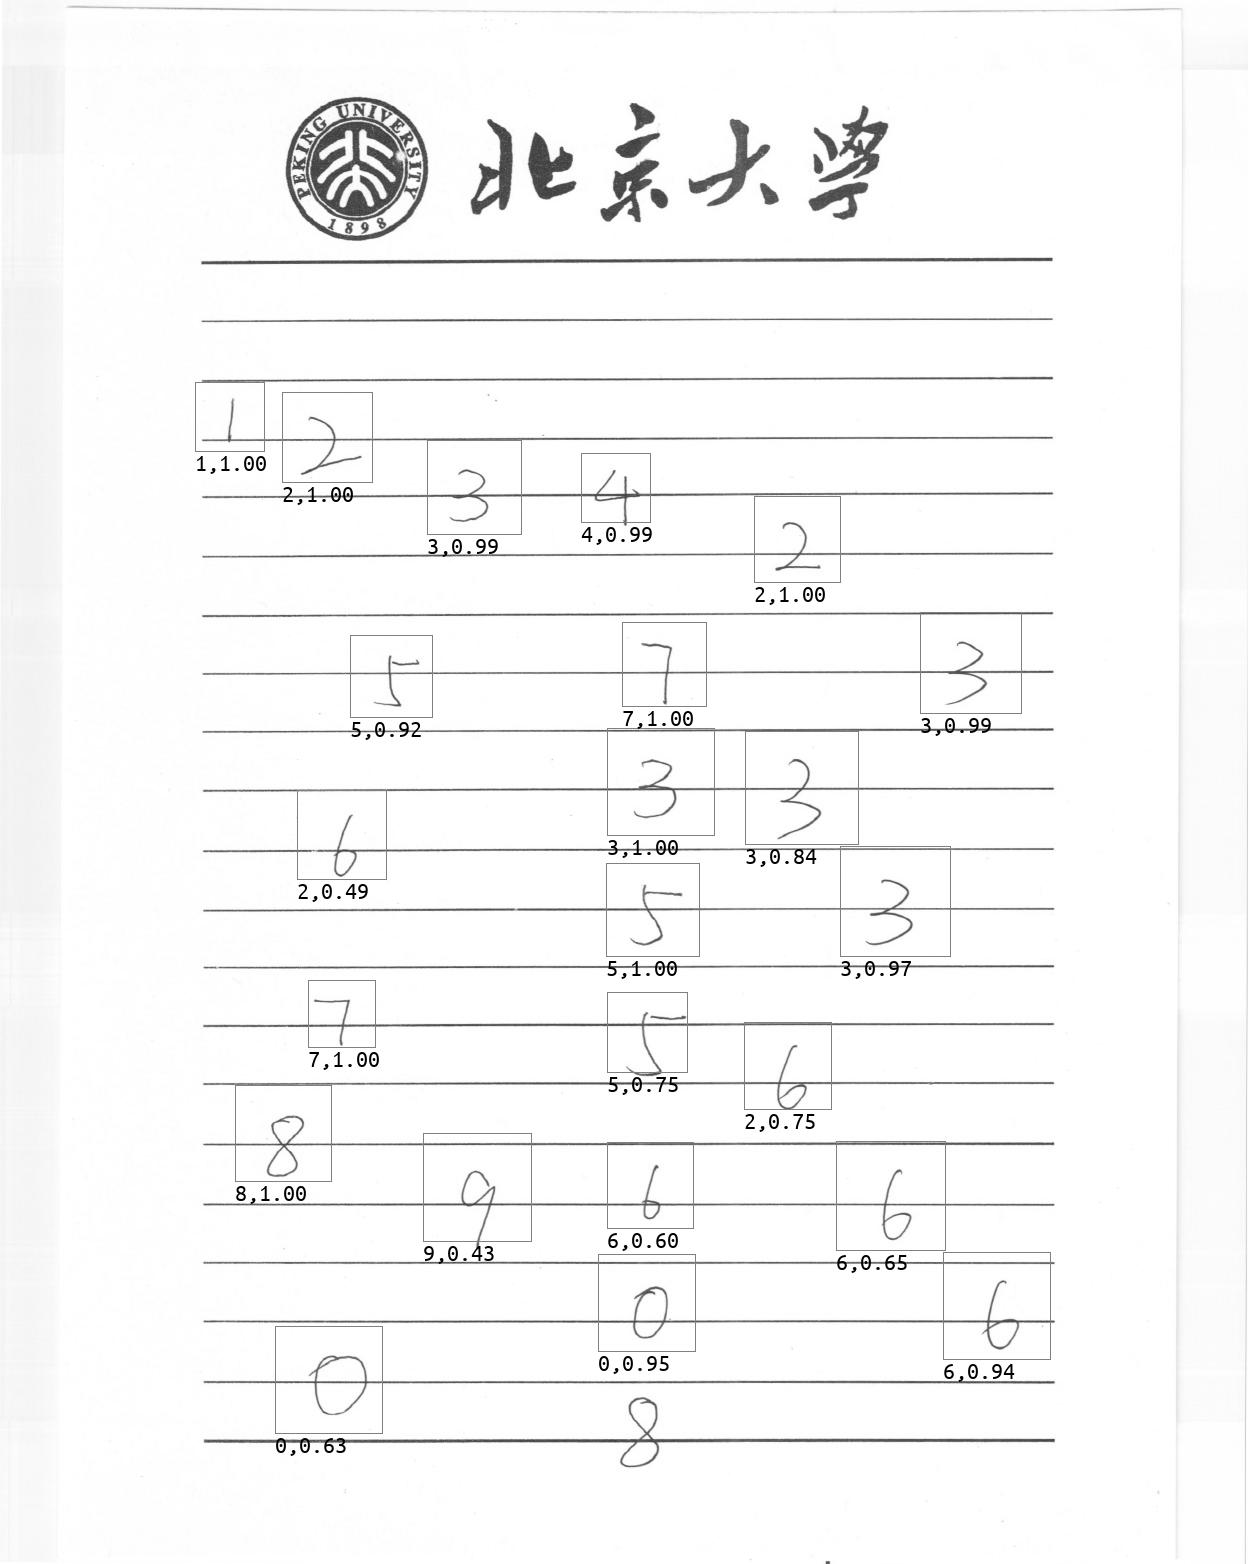 PEKING UNIVERSITY
1898
北京大學
1
1,1.00
2
2,1.00
3
3,0.99
4
4,0.99
2
2,1.00
5
5,0.92
7
7,1.00
3
3,0.99
3
3,1.00
3
3,0.84
6
2,0.49
5
5,1.00
3
3,0.97
7
7,1.00
5
5,0.75
6
2,0.75
8
8,1.00
9
9,0.43
6
6,0.60
6
6,0.65
0
0,0.95
6
6,0.94
0
0,0.63
8